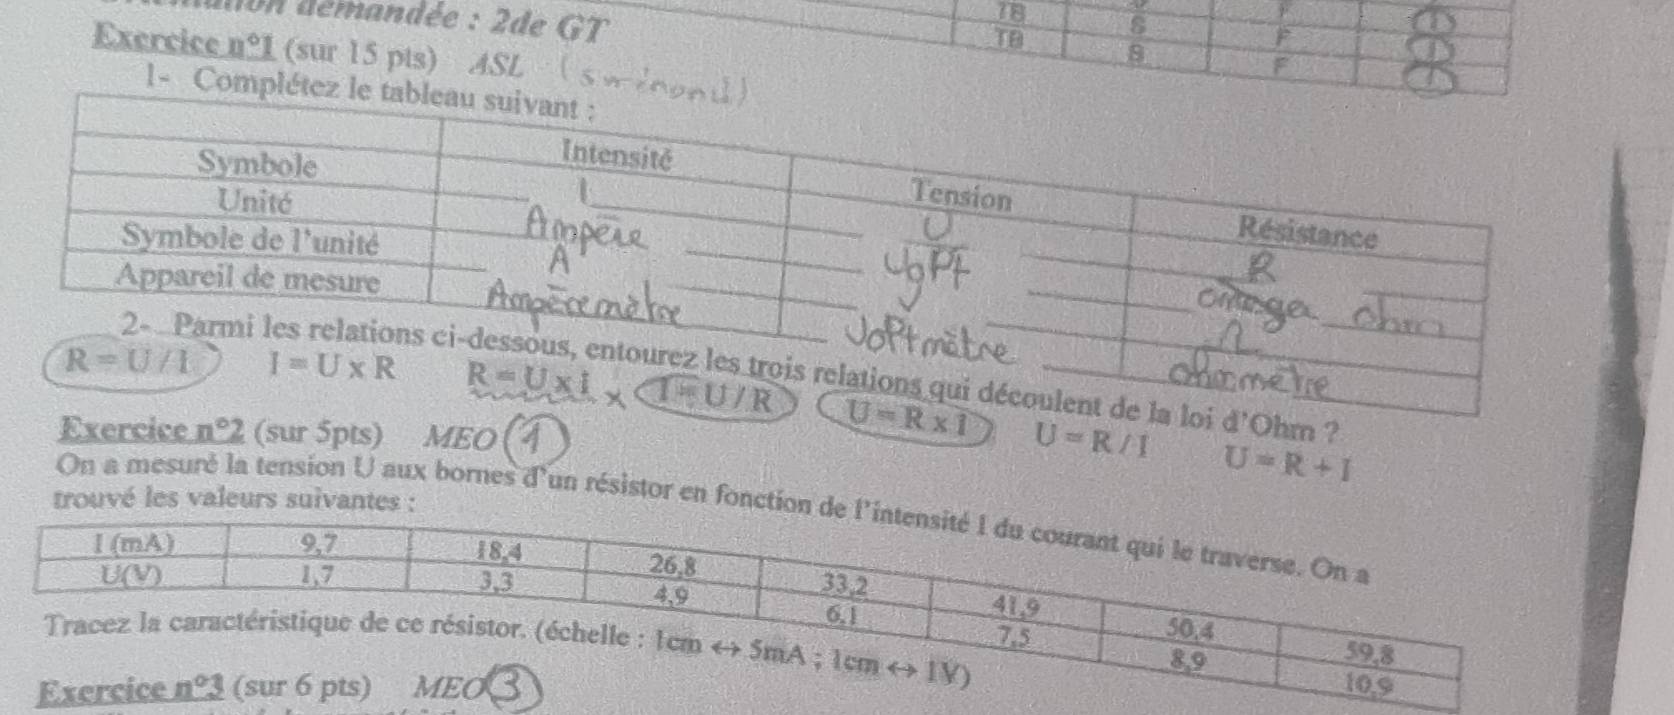 demandée : 2de GT
TB
S
F
TB
B
F
Exercice n°1 (sur 15 pts) ASL
1- Complétez le tableau suivant :
Intensité Tension Résistance
Symbole I U R
Unité Ampère ohm
Symbole de l'unité A Ω
Appareil de mesure Ampèremètre Voltmètre ohmmètre
2- Parmi les relations ci-dessous, entourez les trois relations qui découlent de la loi d'Ohm ?
R = U / I I = U x R R = U x i x I = U / R U = R x I U = R / I U = R + I
Exercice n°2 (sur 5pts) MEO 1
On a mesuré la tension U aux bornes d'un résistor en fonction de l'intensité I du courant qui le traverse. On a
trouvé les valeurs suivantes :
I (mA) 9,7 18,4 26,8 33,2 41,9 50,4 59,8
U(V) 1,7 3,3 4,9 6,1 7,5 8,9 10,9
Tracez la caractéristique de ce résistor. (échelle : 1cm ↔ 5mA ; 1cm ↔ 1V)
Exercice n°3 (sur 6 pts) MEO 3